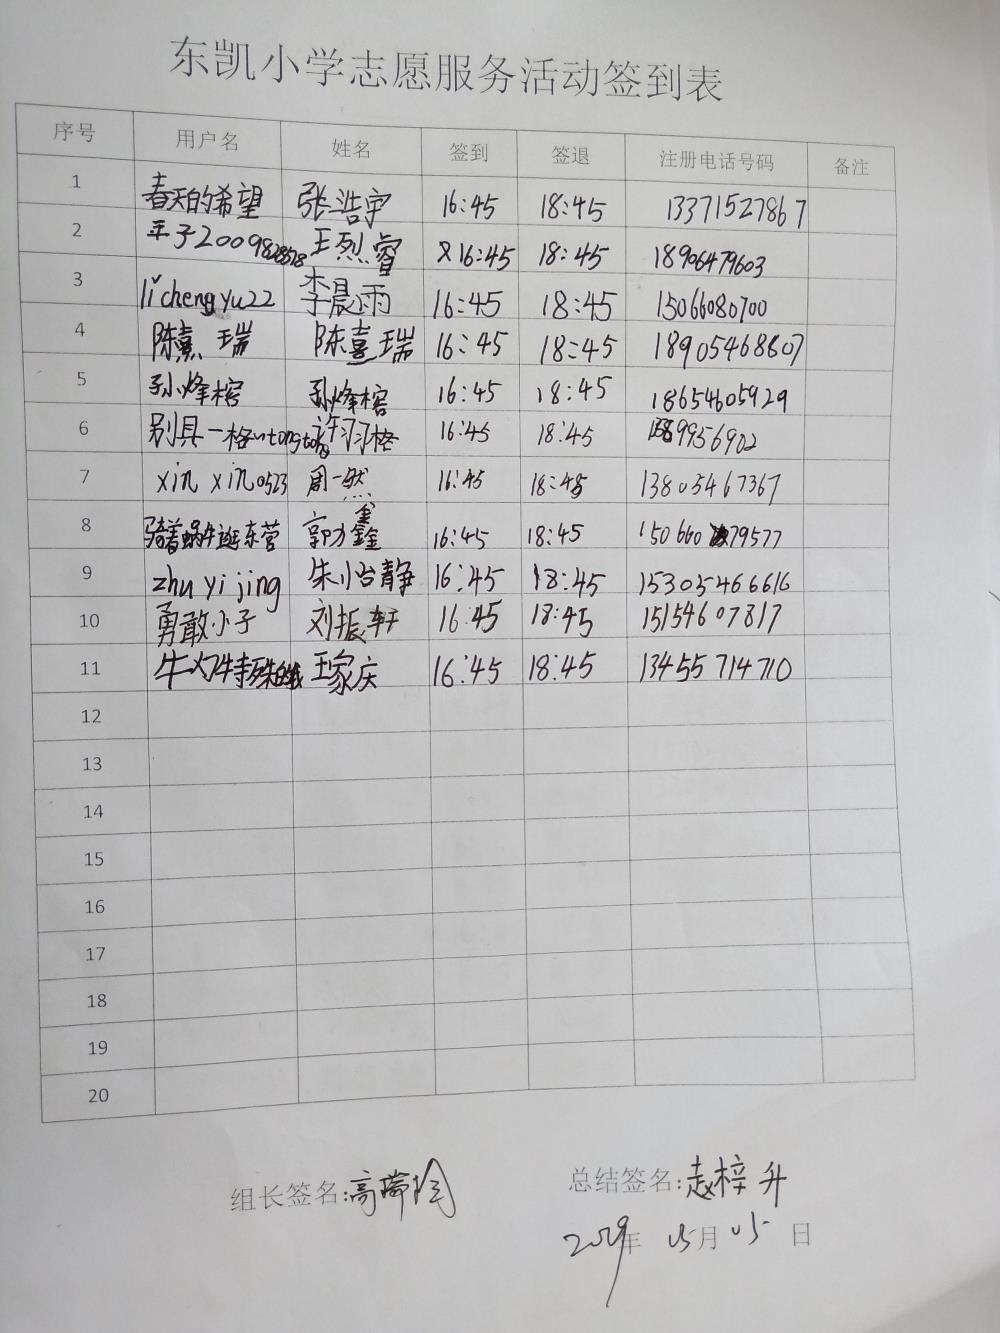 东凯小学志愿服务活动签到表
序号 用户名 姓名 签到 签退 注册电话号码 备注
1 春天的希望 张浩宇 16:45 18:45 13371527867
2 王烈睿 16:45 18:45 18906479603
3 lichengyu22 李晨雨 16:45 18:45 15066080700
4 陈熹瑞 陈熹瑞 16:45 18:45 18905468807
5 孙烽榕 孙烽榕 16:45 18:45 18654605929
6 别具一格 16:45 18:45
7 xin xin0523 周一然 16:45 18:45 13805467367
8 骑着蜗牛逛东营 16:45 18:45
9 zhu yi jing 朱怡静 16:45 18:45 15305466616
10 勇敢小子 刘振轩 16:45 18:45 15154607817
11 王家庆 16:45 18:45 13455714710
12
13
14
15
16
17
18
19
20
组长签名: 总结签名:赵梓升
2019年 05月 05日